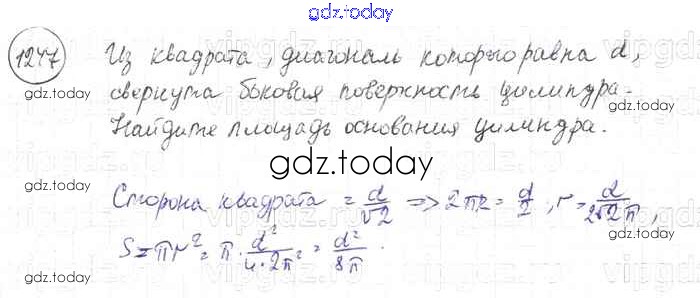 gdz.today
1247 Из квадрата, диагональ которого равна d,
gdz.today
свернута боковая поверхность цилиндра.
Найдите площадь основания цилиндра.
gdz.today
gdz.today
gdz.today
Сторона квадрата = d/√2 => 2πR = d/2, r = d/2√2π,
S = πr² = π · d²/4·2π² = d²/8π.
gdz.today
gdz.today